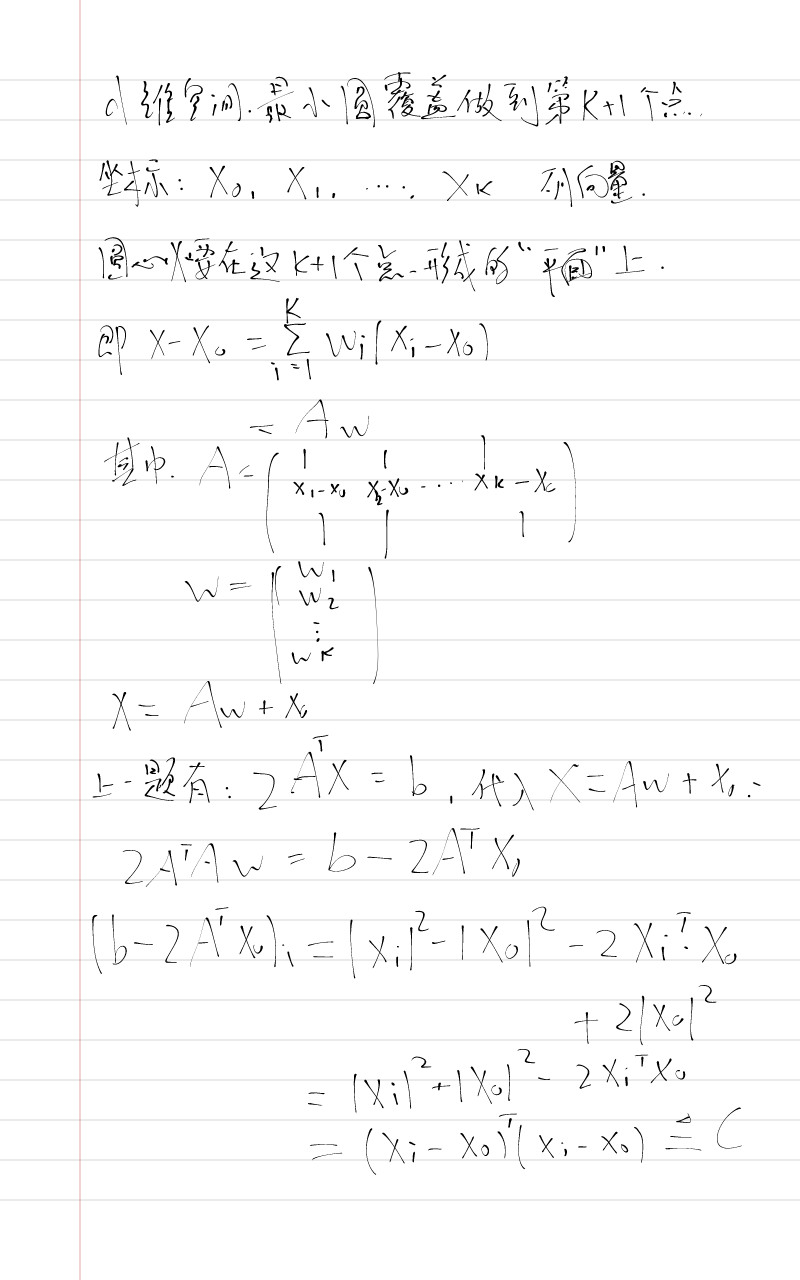 d维空间.最小圆覆盖做到第K+1个点.
坐标: X₀, X₁, ..., Xₖ 列向量.
圆心X要在这K+1个点形成的"平面"上.
即 X-X₀ = Σ_{i=1}^{K} Wᵢ(Xᵢ-X₀)
= Aw
其中. A = ( X₁-X₀ X₂-X₀ ...... Xₖ-X₀ )
W = ( W₁
W₂
⋮
Wₖ )
X = Aw + X₀
上一题有: 2AᵀX = b, 代入X=Aw+X₀:
2AᵀAw = b-2AᵀX₀
(b-2AᵀX₀)ᵢ = |Xᵢ|²-|X₀|²-2Xᵢᵀ·X₀
+2|X₀|²
= |Xᵢ|²+|X₀|²-2XᵢᵀX₀
= (Xᵢ-X₀)ᵀ(Xᵢ-X₀) ≜ C